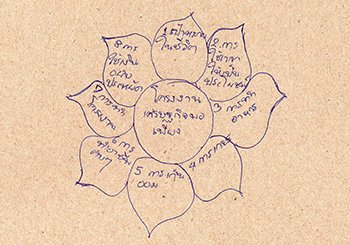 โครงงาน
เศรษฐกิจพอ
เพียง
1 เป้าหมาย
ในชีวิต
2 การ
ใช้เวลา
ให้เป็น
ประโยชน์
3 การทำ
อาหาร
4 การเกษ
5 การเก็บ
ออม
6 การ
ต่างๆ
7 การทำ
โครงงาน
8 การ
ใช้จ่าย
อย่าง
ประหยัด